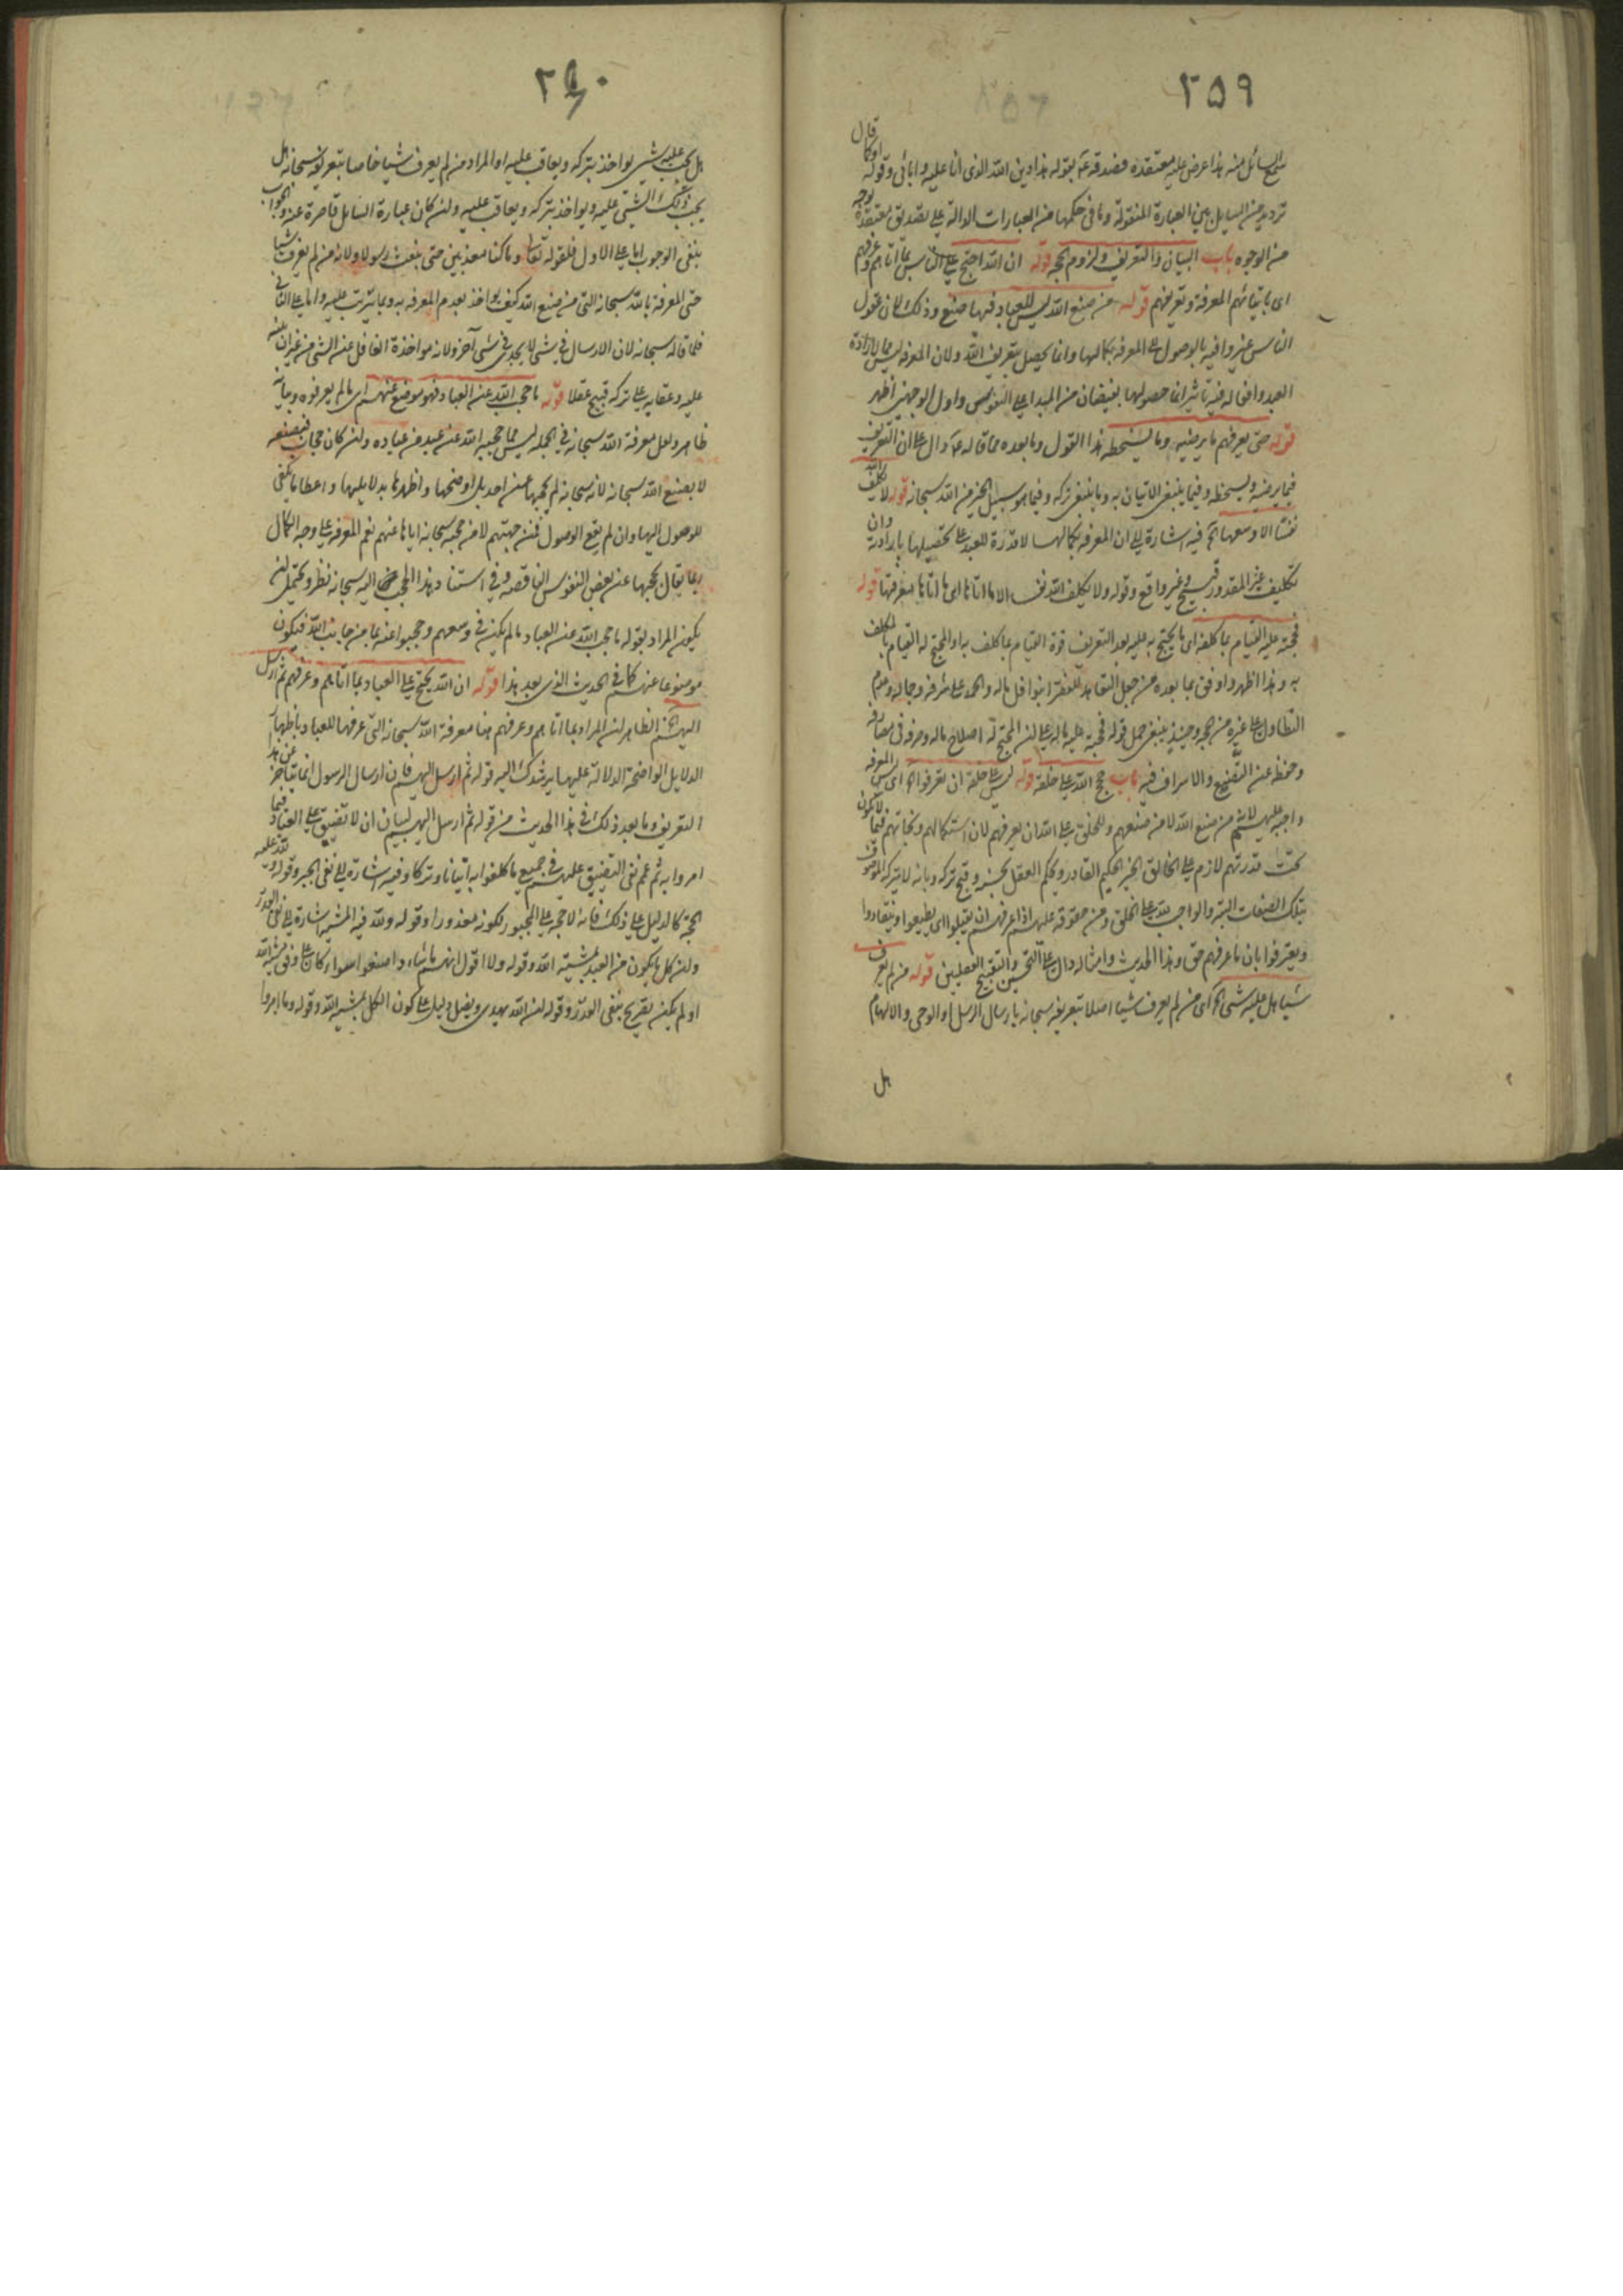 ٢٥٩
او قال
السائل منه هذا عرض عليه معتقده فصدقه ع بقوله هذا دين الله الذى انا عليه وابائى وقوله او كما
ترديد من السايل بين العبارة المنقولة وما فى حكمها من العبارات الدالة على تصديق معتقده بوجه
من الوجوه باب البيان والتعريف ولزوم الحجه قوله ان الله احتج على الناس بما اتاهم وعرفهم
اى باتيانهم المعرفة وتعريفهم قوله من صنع الله ليس للعباد فيها صنع وذلك لان عقول
الناس غير وافية بالوصول الى المعرفه بكمالها وانما يحصل بتعريف الله ولان المعرفه ليس مما لارادة
العبد وافعاله فيه تاثير انما حصولها بفيضان من المبدا على النفوس واول الوجهين اظهر
قوله حتى يعرفهم ما يرضيه وما يسخطه هذا القول وما بعده مما قاله ع دال على ان التعريف
فيما يرضيه ويسخطه وفيما ينبغى الاتيان به وما ينبغى تركه وفيما هو سبيل الخير من الله سبحانه قوله لا يكلف الله
نفسا الا وسعها آه فيه اشارة الى ان المعرفه بكمالها لا قدرة للعبد على تحصيلها بارادته وان
تكليف غير المقدور قبيح وغير واقع وقوله ولا يكلف الله نفسا الا ما اتاها اى ما اتاها معرفتها قوله
فحجته عليه القيام بما كلفه اى ما يحتج به عليه بعد التعريف قوة القيام بما كلف به او المحتج له القيام بما كلف
به وهذا اظهر واوفق بما بعده من جعل التعاهد للفقراء بنوافل ماله والحمد على شرفه وجماله وعدم
التطاول على غيره من حجه وحينئذ ينبغى حمل قوله فحجته عليه ماله على ان المحتج له اصلاح ماله وصرفه فى مصارفه
وحفظه عن التضييع والاسراف فيه باب حجج الله على خلقه قوله ليس لله على خلقه ان يعرفوا آه اى ليس المعرفه
واجبة عليهم لانه من صنع الله لا من صنعهم وللخلق على الله ان يعرفهم لان استكمالهم ونجاتهم فيما لا يكون
تحت قدرتهم لازم على الخالق الخير الحكيم القادر ويحكم العقل بحسنه وقبح تركه وبانه لا يتركه الموصوف
بتلك الصفات البته والواجب لله على الخلق ومن حقوقه عليهم اذا عرفهم ان يقبلوا اى يطيعوا وينقادوا
ويعترفوا بان ما عرفهم حق وهذا الحديث وامثاله دال على التحسين والتقبيح العقليين قوله من لم يعرف
شيئا هل عليه شىء آه اى من لم يعرف شيئا اصلا بتعريفه سبحانه بارسال الرسل او الوحى والالهام
هل
٢٦٠
هل يجب عليه شىء يواخذ بتركه ويعاقب عليه او المراد من لم يعرف شيئا خاصا بتعريفه سبحانه هل
يجب ذلك الشىء عليه ويواخذ بتركه ويعاقب عليه ولن كان عبارة السايل قاصرة عنه والجواب
بنفى الوجوب اما على الاول فلقوله تعالى وما كنا معذبين حتى نبعث رسولا ولانه من لم يعرف شيئا
حتى المعرفة بالله سبحانه التى من صنع الله كيف يواخذ بعدم المعرفه به وبما يترتب عليه واما على الثانى
فلما قاله سبحانه لان الارسال فى شىء لا يجدى فى شىء آخر ولانه مواخذة الغافل عن الشىء من غير ان ينبه
عليه وعقابه على تركه قبيح عقلا قوله ما حجب الله عن العباد فهو موضوع عنهم اى ما لم يعرفوه وبيانه
ظاهر ولعل معرفة الله سبحانه فى الجمله ليس مما حجبه الله عن عبد من عباده ولن كان حجاب فبصنعه
لا بصنع الله سبحانه لانه سبحانه لم يحجبها عن احد بل اوضحها واظهرها بدلايلها واعطا ما يكفى
للوصول اليها وان لم يقع الوصول فمن جهتهم لا من حجبه سبحانه اياها عنهم نعم المعرفه على وجه الكمال
ربما يقال بحجبها عن بعض النفوس الناقصه وفى استناد هذا الحجب اليه سبحانه نظر ويحتمل ان
يكون المراد بقوله ما حجب الله عن العباد ما لم يكن فى وسعهم وحجبوا عنه بما من جانب الله فيكون
موضوعا عنهم كما فى الحديث الذى بعد هذا قوله ان الله يحتج على العباد بما اتاهم وعرفهم ثم ارسل
اليهم آه الظاهر ان المراد بما اتاهم وعرفهم هنا معرفة الله سبحانه التى عرفها للعباد باظهار
الدلايل الواضحة الدلالة عليها يرشدك اليه قوله ثم ارسل اليهم فان ارسال الرسول انما يتاخر عن هذا
التعريف وما بعد ذلك فى هذا الحديث من قوله ثم ارسل اليهم لبيان ان لا تضييق على العباد فيما
امروا به ثم عمم نفى التضييق عليهم فى جميع ما كلفوا به اتيانا وتركا وفيه اشارة الى نفى الجبر وقوله ولله عليه
الحجة كالدليل على ذلك فانه لا حجه على المجبور لكونه معذورا وقوله ولله فيه المشيه اشارة الى نفى القدر
ولن كل ما يكون من العبد بمشية الله وقوله ولا اقول انهم ما شاء وا صنعوا سواء كان على وفق مشية الله
او لم يكن تصريح بنفى القدر وقوله ان الله يهدى ويضل دليل على كون الكل بمشية الله وقوله وما امروا